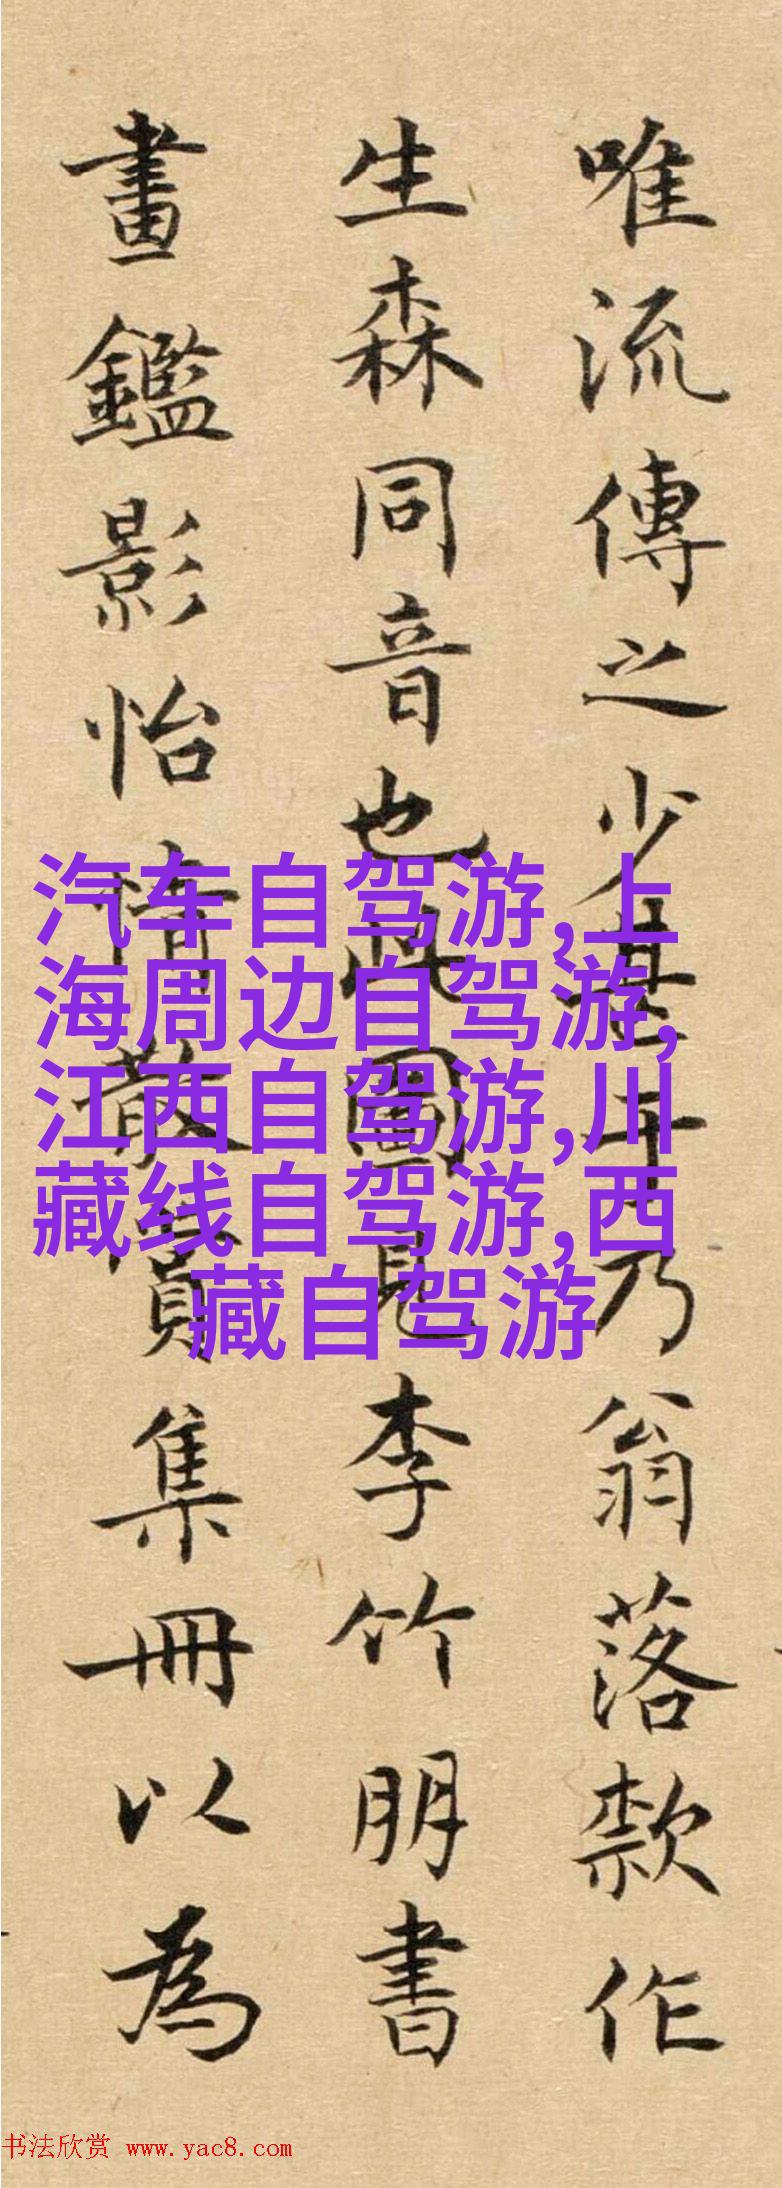 唯流傳之少甚年乃翁落款作
生森同音也此圖見李竹朋書
畫鑑影怡情散賞集冊以為
汽车自驾游,上
海周边自驾游,
江西自驾游,川
藏线自驾游,西
藏自驾游
书法欣赏 www.yac8.com